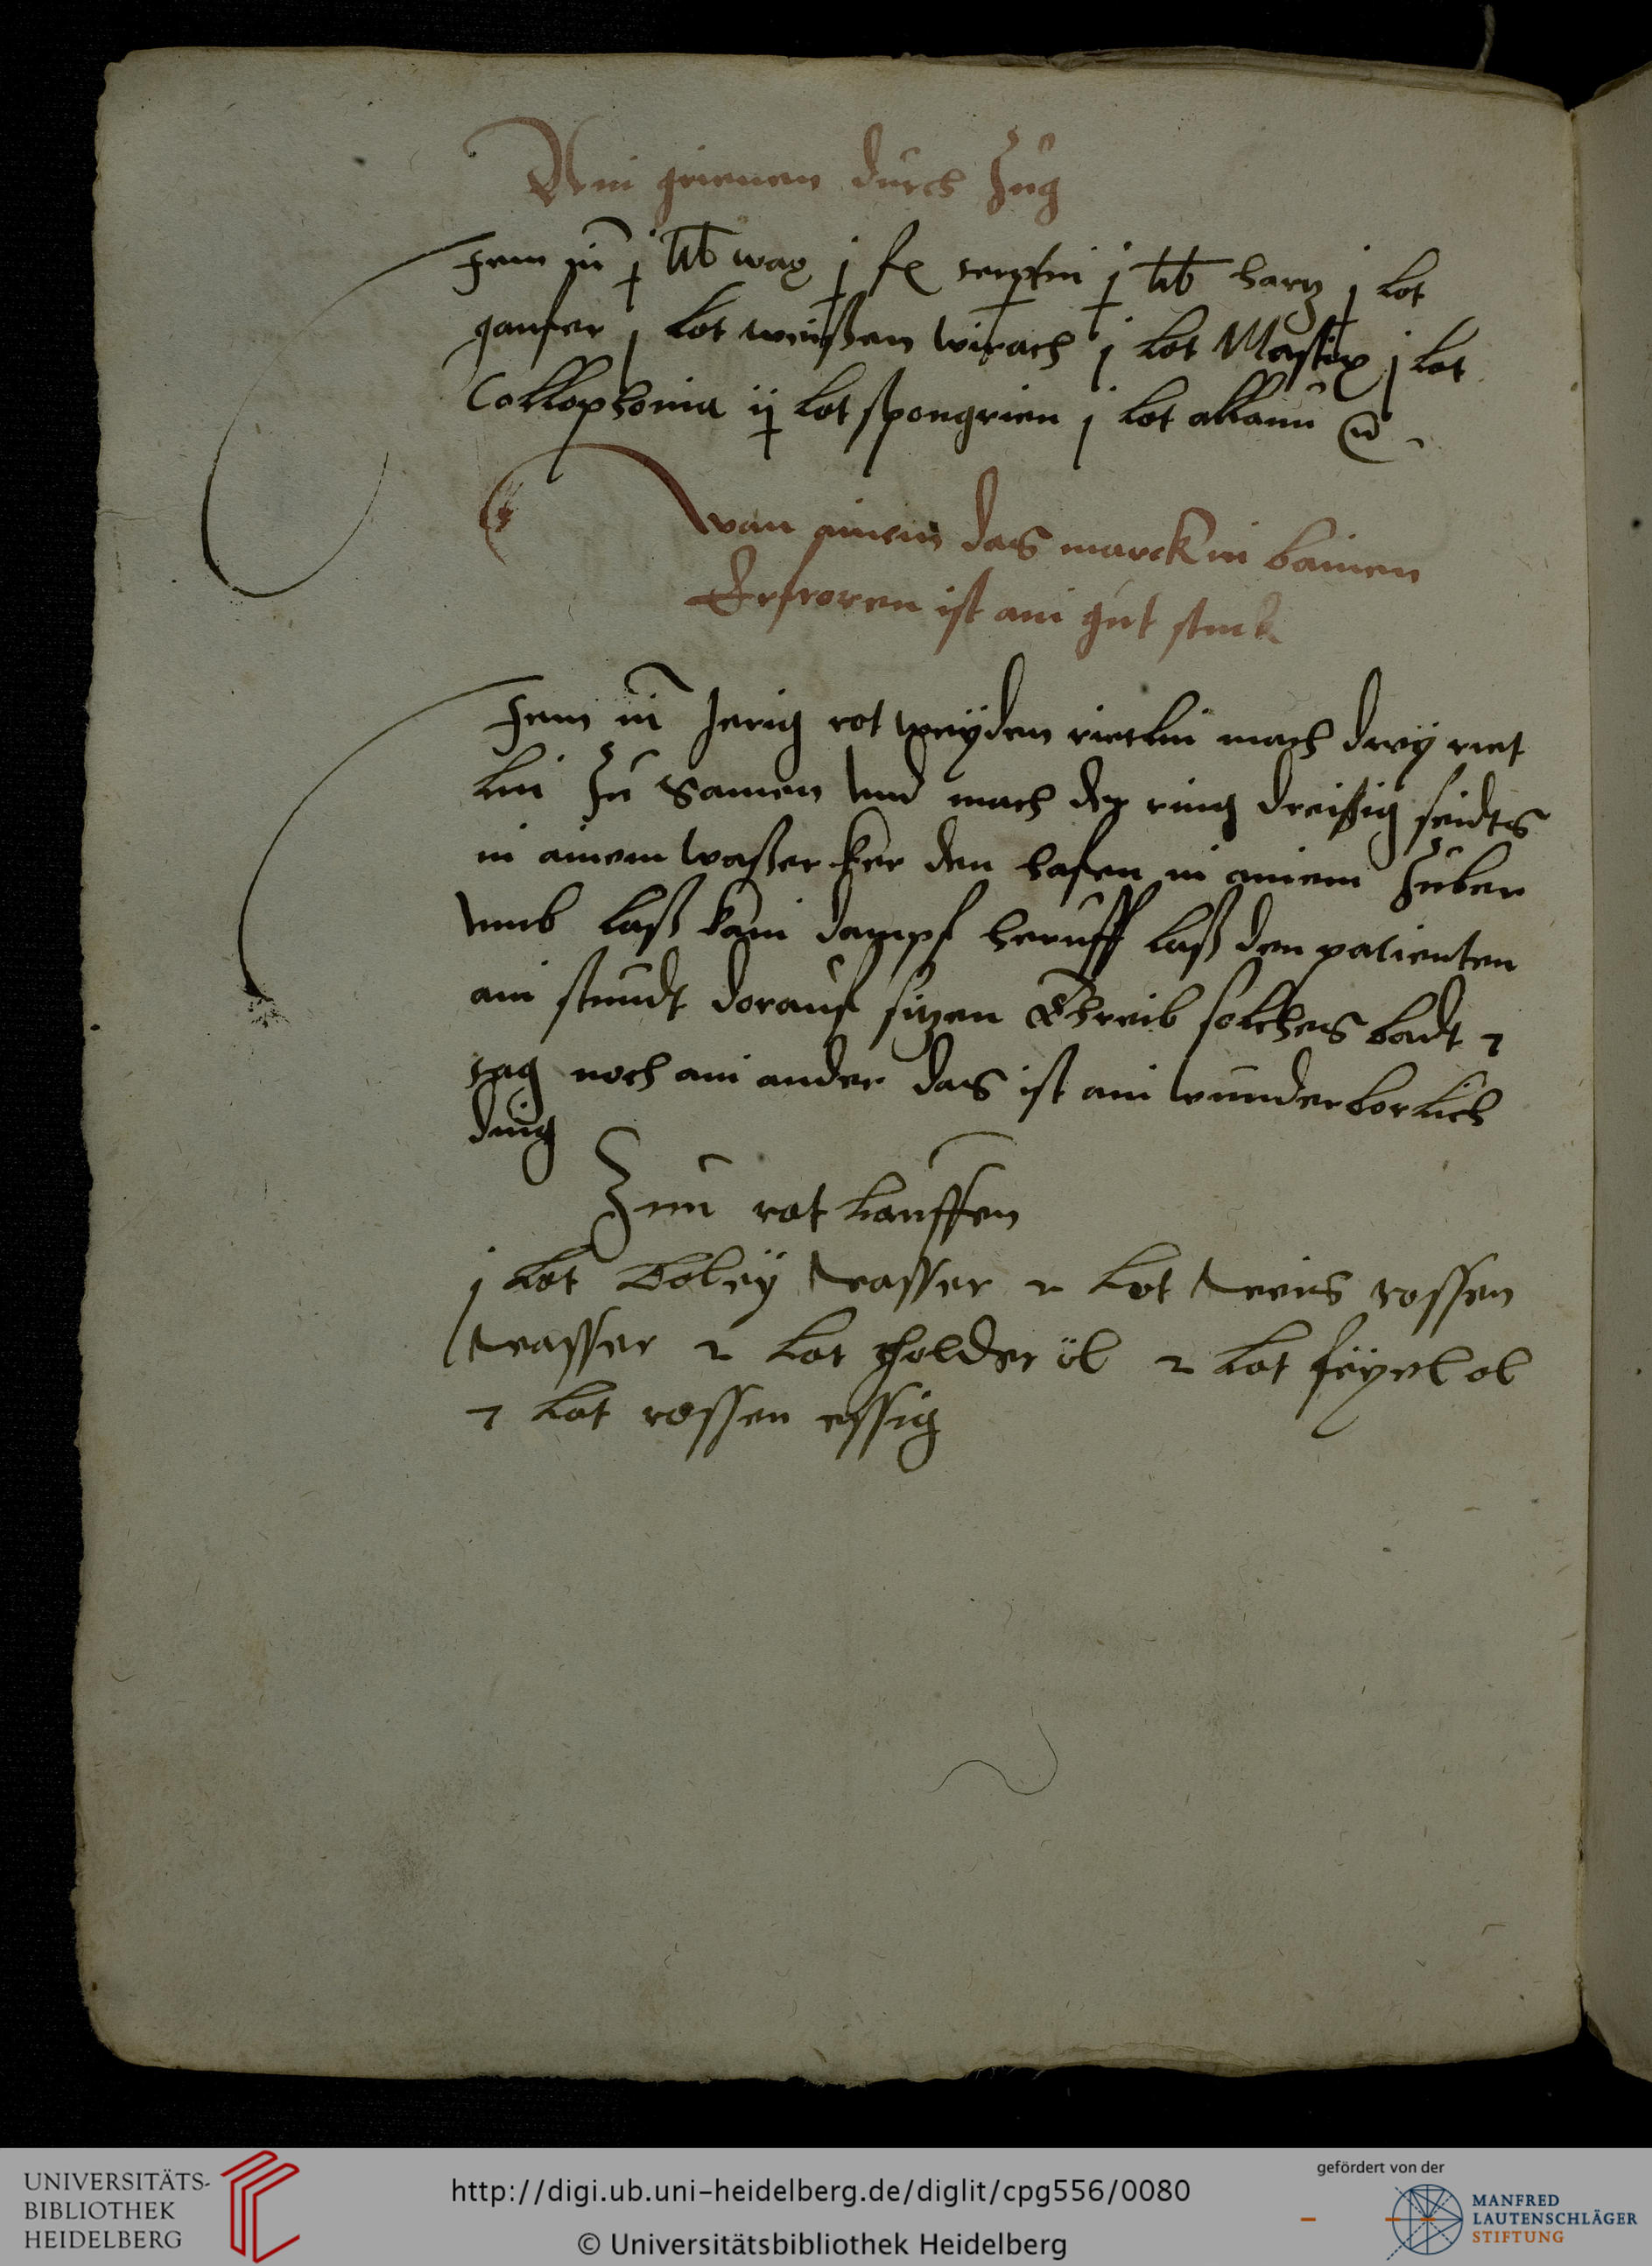 Ain grienen durch Zug
Jtem nim̄ j lib wax j lib terpetin j lib hartz j lot
ganfer j lot weißen wirach j lot Mastix j lot
Collophonia ij lot spongrien j lot allaun
wan ainem das marck in bainen
Erfroren ist ain gut stuck
Jtem nim̄ Jerig rot weyden rietlin mach drey riet
lin Zu samen vnd mach der ring dreißig seudts
in ainem waßer ker den hafen in ainem Zuber
vmb laß kain dampf heruff laß den patienten
ain stundt dorauf sitzen Treib solches badt 7
tag noch ain ander das ist ain wunderborlich
ding
Zum rot lauffen
j lot boley wasser 2 lot weis rossen
wasser 2 lot holder öl 2 lot feyel ol
7 lot rossen essig
UNIVERSITÄTS-
BIBLIOTHEK
HEIDELBERG
http://digi.ub.uni-heidelberg.de/diglit/cpg556/0080
© Universitätsbibliothek Heidelberg
gefördert von der
MANFRED
LAUTENSCHLÄGER
STIFTUNG